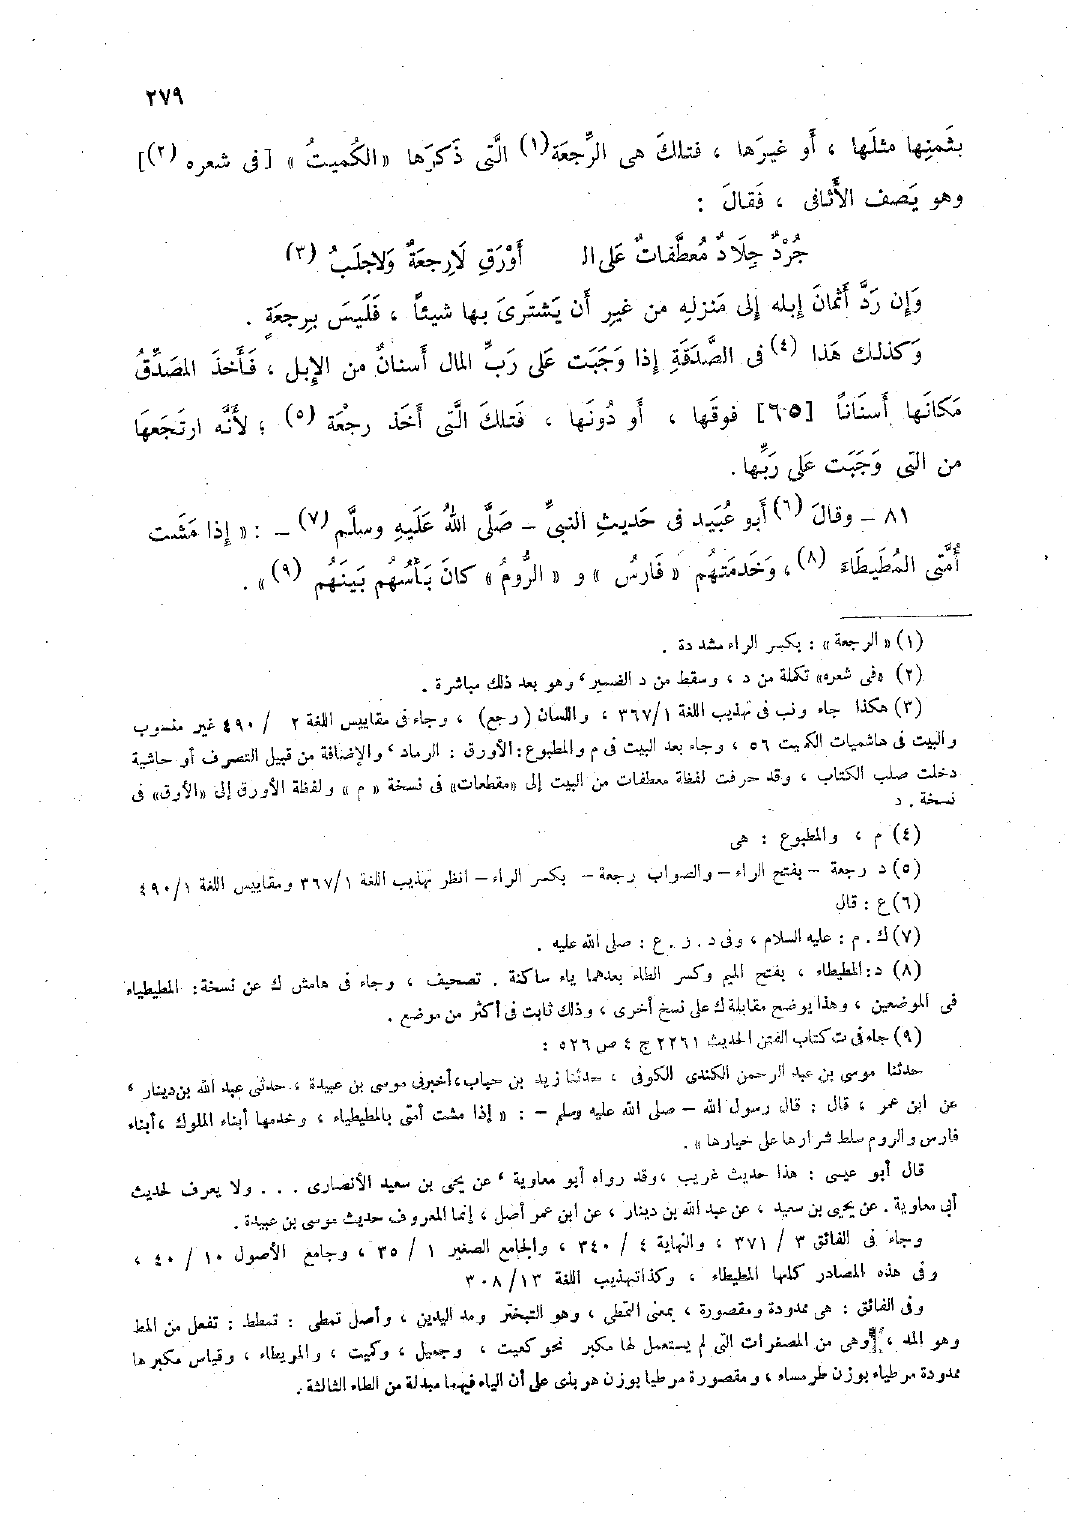 ٢٧٩
بثَمنِها مثلَها ، أَو غيرَها ، فتلكَ هى الرِّجعَة(١) الَّتى ذَكرَها «الكُميتُ» [فى شعره (٢)]
وهو يَصف الأَثافى ، فَقالَ :
جُرْدٌ جِلَادٌ مُعطَّفاتٌ عَلى الـ أَوْرَقِ لَارِجعَةٌ وَلاجلَبُ (٣)
وَإن رَدَّ أَثمانَ إبله إلى مَنزلهِ من غيرِ أَن يَشتَرىَ بها شيئاً ، فَلَيسَ بِرِجعَةٍ .
وَكذلك هَذا (٤) فى الصَّدَقَةِ إذا وَجَبَت عَلى رَبِّ المال أَسنانٌ من الإِبل ، فَأَخذَ المصَدِّقُ
مَكانَها أَسنَاناً [٦٥] فوقَها ، أَو دُونَها ، فَتلكَ الَّتى أَخَذ رجْعَة (٥) ؛ لأَنَّه ارتَجَعَهَا
من التى وَجَبَت عَلى رَبِّها.
٨١ – وقالَ (٦) أَبو عُبَيد فى حَديثِ النبىِّ – صَلَّى اللهُ عَلَيهِ وسلَّم (٧) – : « إذا مَشَت
أُمَّتى المُطَيطَاءَ (٨)، وَخَدمَتهُم «فَارسُ» و «الرُّومُ» كانَ بَأْسُهُم بَينَهُم (٩)» .
(١) «الرجعة» : بكسر الراء مشددة .
(٢) «فى شعره» تكملة من د ، وسقط من د الفسير ، وهو بعد ذلك مباشرة .
(٣) هكذا جاء ونسب فى تهذيب اللغة ٣٦٧/١ ، واللسان (رجع) ، وجاء فى مقاييس اللغة ٢ / ٤٩٠ غير منسوب
والبيت فى هاشميات الكميت ٥٦ ، وجاء بعد البيت فى م والمطبوع: الأورق : الرماد ، والإضافة من قبيل التصرف أو حاشية
دخلت صلب الكتاب ، وقد حرفت لفظة معطفات من البيت إلى «مقطعات» فى نسخة «م» ولفظة الأورق إلى «الأوق» فى
نسخة . د
(٤) م ، والمطبوع : هى
(٥) د رجعة – بفتح الراء – والصواب رجعة – بكسر الراء – انظر تهذيب اللغة ٣٦٧/١ ومقاييس اللغة ٤٩٠/١
(٦) ع : قال
(٧) ك . م : عليه السلام ، وفى د . ز . ع : صلى الله عليه .
(٨) د: المطيطاء ، بفتح الميم وكسر الطاء بعدهما ياء ساكنة . تصحيف ، وجاء فى هامش ك عن نسخة: المطيطياء
فى الموضعين ، وهذا يوضح مقابلة ك على نسخ أخرى ، وذلك ثابت فى أكثر من موضع .
(٩) جاء فى ت كتاب الفتن الحديث ٢٢٦١ ج ٤ ص ٥٢٦ :
حدثنا موسى بن عبد الرحمن الكندى الكوفى ، حدثنا زيد بن حياب، أخبرنى موسى بن عبيدة ، حدثنى عبد الله بن دينار ،
عن ابن عمر ، قال : قال رسول الله – صلى الله عليه وسلم – : «إذا مشت أمتى بالمطيطياء ، وخدمها أبناء الملوك ، أبناء
فارس والروم سلط شرارها على خيارها» .
قال أبو عيسى : هذا حديث غريب ، وقد رواه أبو معاوية ، عن يحيى بن سعيد الأنصارى . . . ولا يعرف لحديث
أبى معاوية . عن يحيى بن سعيد ، عن عبد الله بن دينار ، عن ابن عمر أصل ، إنما المعروف حديث موسى بن عبيدة .
وجاء فى الفائق ٣ / ٣٧١ ، والنهاية ٤ / ٣٤٠ ، والجامع الصغير ١ / ٣٥ ، وجامع الأصول ١٠ / ٤٠ ،
وفى هذه المصادر كلها المطيطاء ، وكذا تهذيب اللغة ٣٠٨/١٣
وفى الفائق : هى ممدودة ومقصورة ، بمعنى التمطى ، وهو التبختر ومد اليدين ، وأصل تمطى : تمطط : تفعل من المط
وهو المد ، وهى من المصغرات التى لم يستعمل لها مكبر نحو كعيت ، وجميل ، وكميت ، والمريطاء ، وقياس مكبرها
ممدودة مرطياء بوزن طرمساء ، ومقصورة مرطيا بوزن هربذى على أن الياء فيهما مبدلة من الطاء الثالثة .